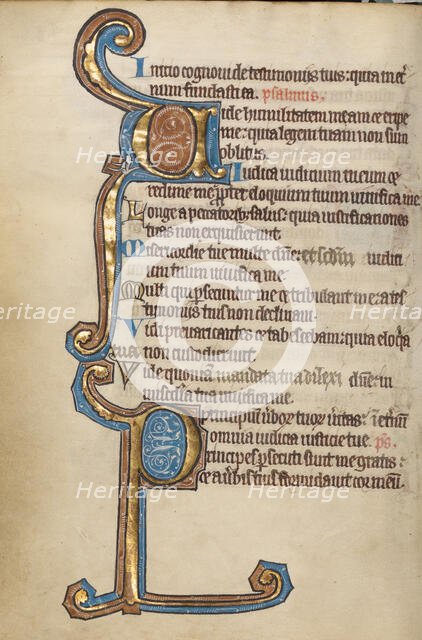 Initio cognoui de testimoniis tuis: quia in et̃
num fundasti ea. psalmus.
Uide humilitatem meam et eripe
me: quia legem tuam non sum
oblitus.
Iudica iudicium meum et
redime me: ꝓpter eloquium tuum uiuifica me
Longe a peccatorib; salus: quia iustificationes
tuas non exquisierunt.
Misericordie tue multe dñe: et scdm̃ iudici
um tuum uiuifica me.
Multi qui ꝑsecuntur me et tribulant me: a tes
timoniis tuis non declinaui.
Vidi preuaricantes et tabescebam: quia eloq̃a
tua non custodierunt.
Vide quoniam mandata tua dilexi dñe: in
mis̃cdia tua uiuifica me.
Principium u̾boꝝ tuoꝝ u̾itas: ĩ et̾nũ
omnia iudicia iusticie tue. ps̃.
Principes ꝑsecuti sunt me gratis:
et a u̾bis tuis formidauit cor meũ.
Heritage
Heritage
Heritage
Heritage
Heritage
Heritage